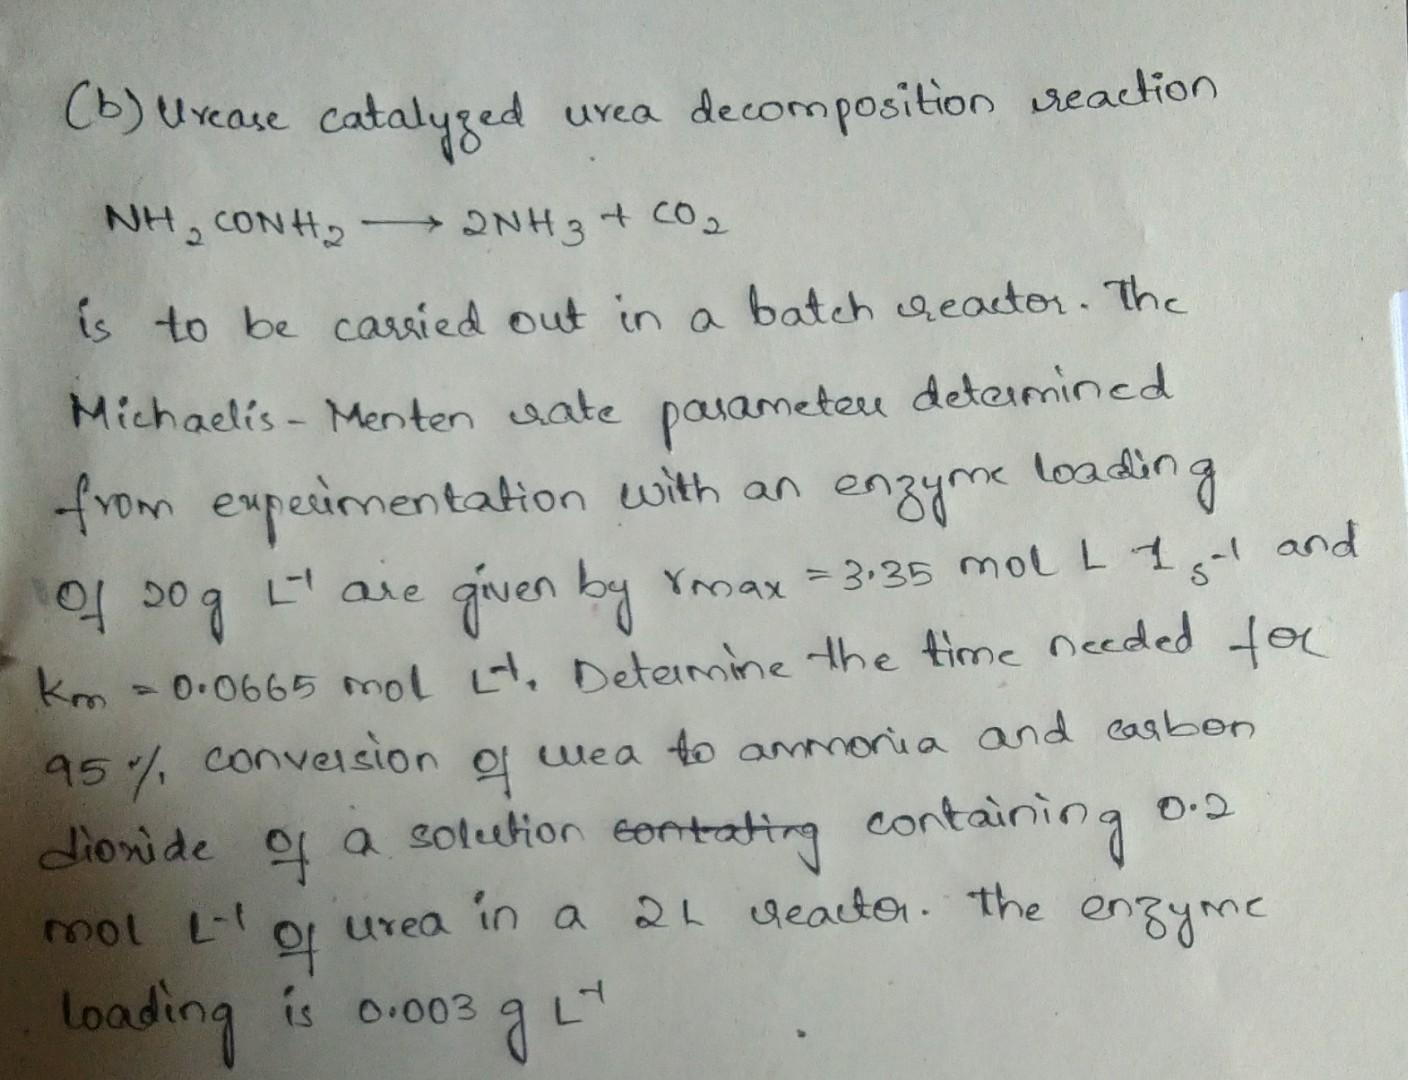 (b) Urease catalyzed urea decomposition reaction
NH₂CONH₂ ⟶ 2NH₃ + CO₂
is to be carried out in a batch reactor. The
Michaelis - Menten rate parameters determined
from experimentation with an enzyme loading
of 20 g L⁻¹ are given by rmax = 3.35 mol L 1 s⁻¹ and
km = 0.0665 mol L⁻¹. Determine the time needed for
95 % conversion of urea to ammonia and carbon
dioxide of a solution containing 0.2
mol L⁻¹ of urea in a 2L reactor. The enzyme
loading is 0.003 g L⁻¹